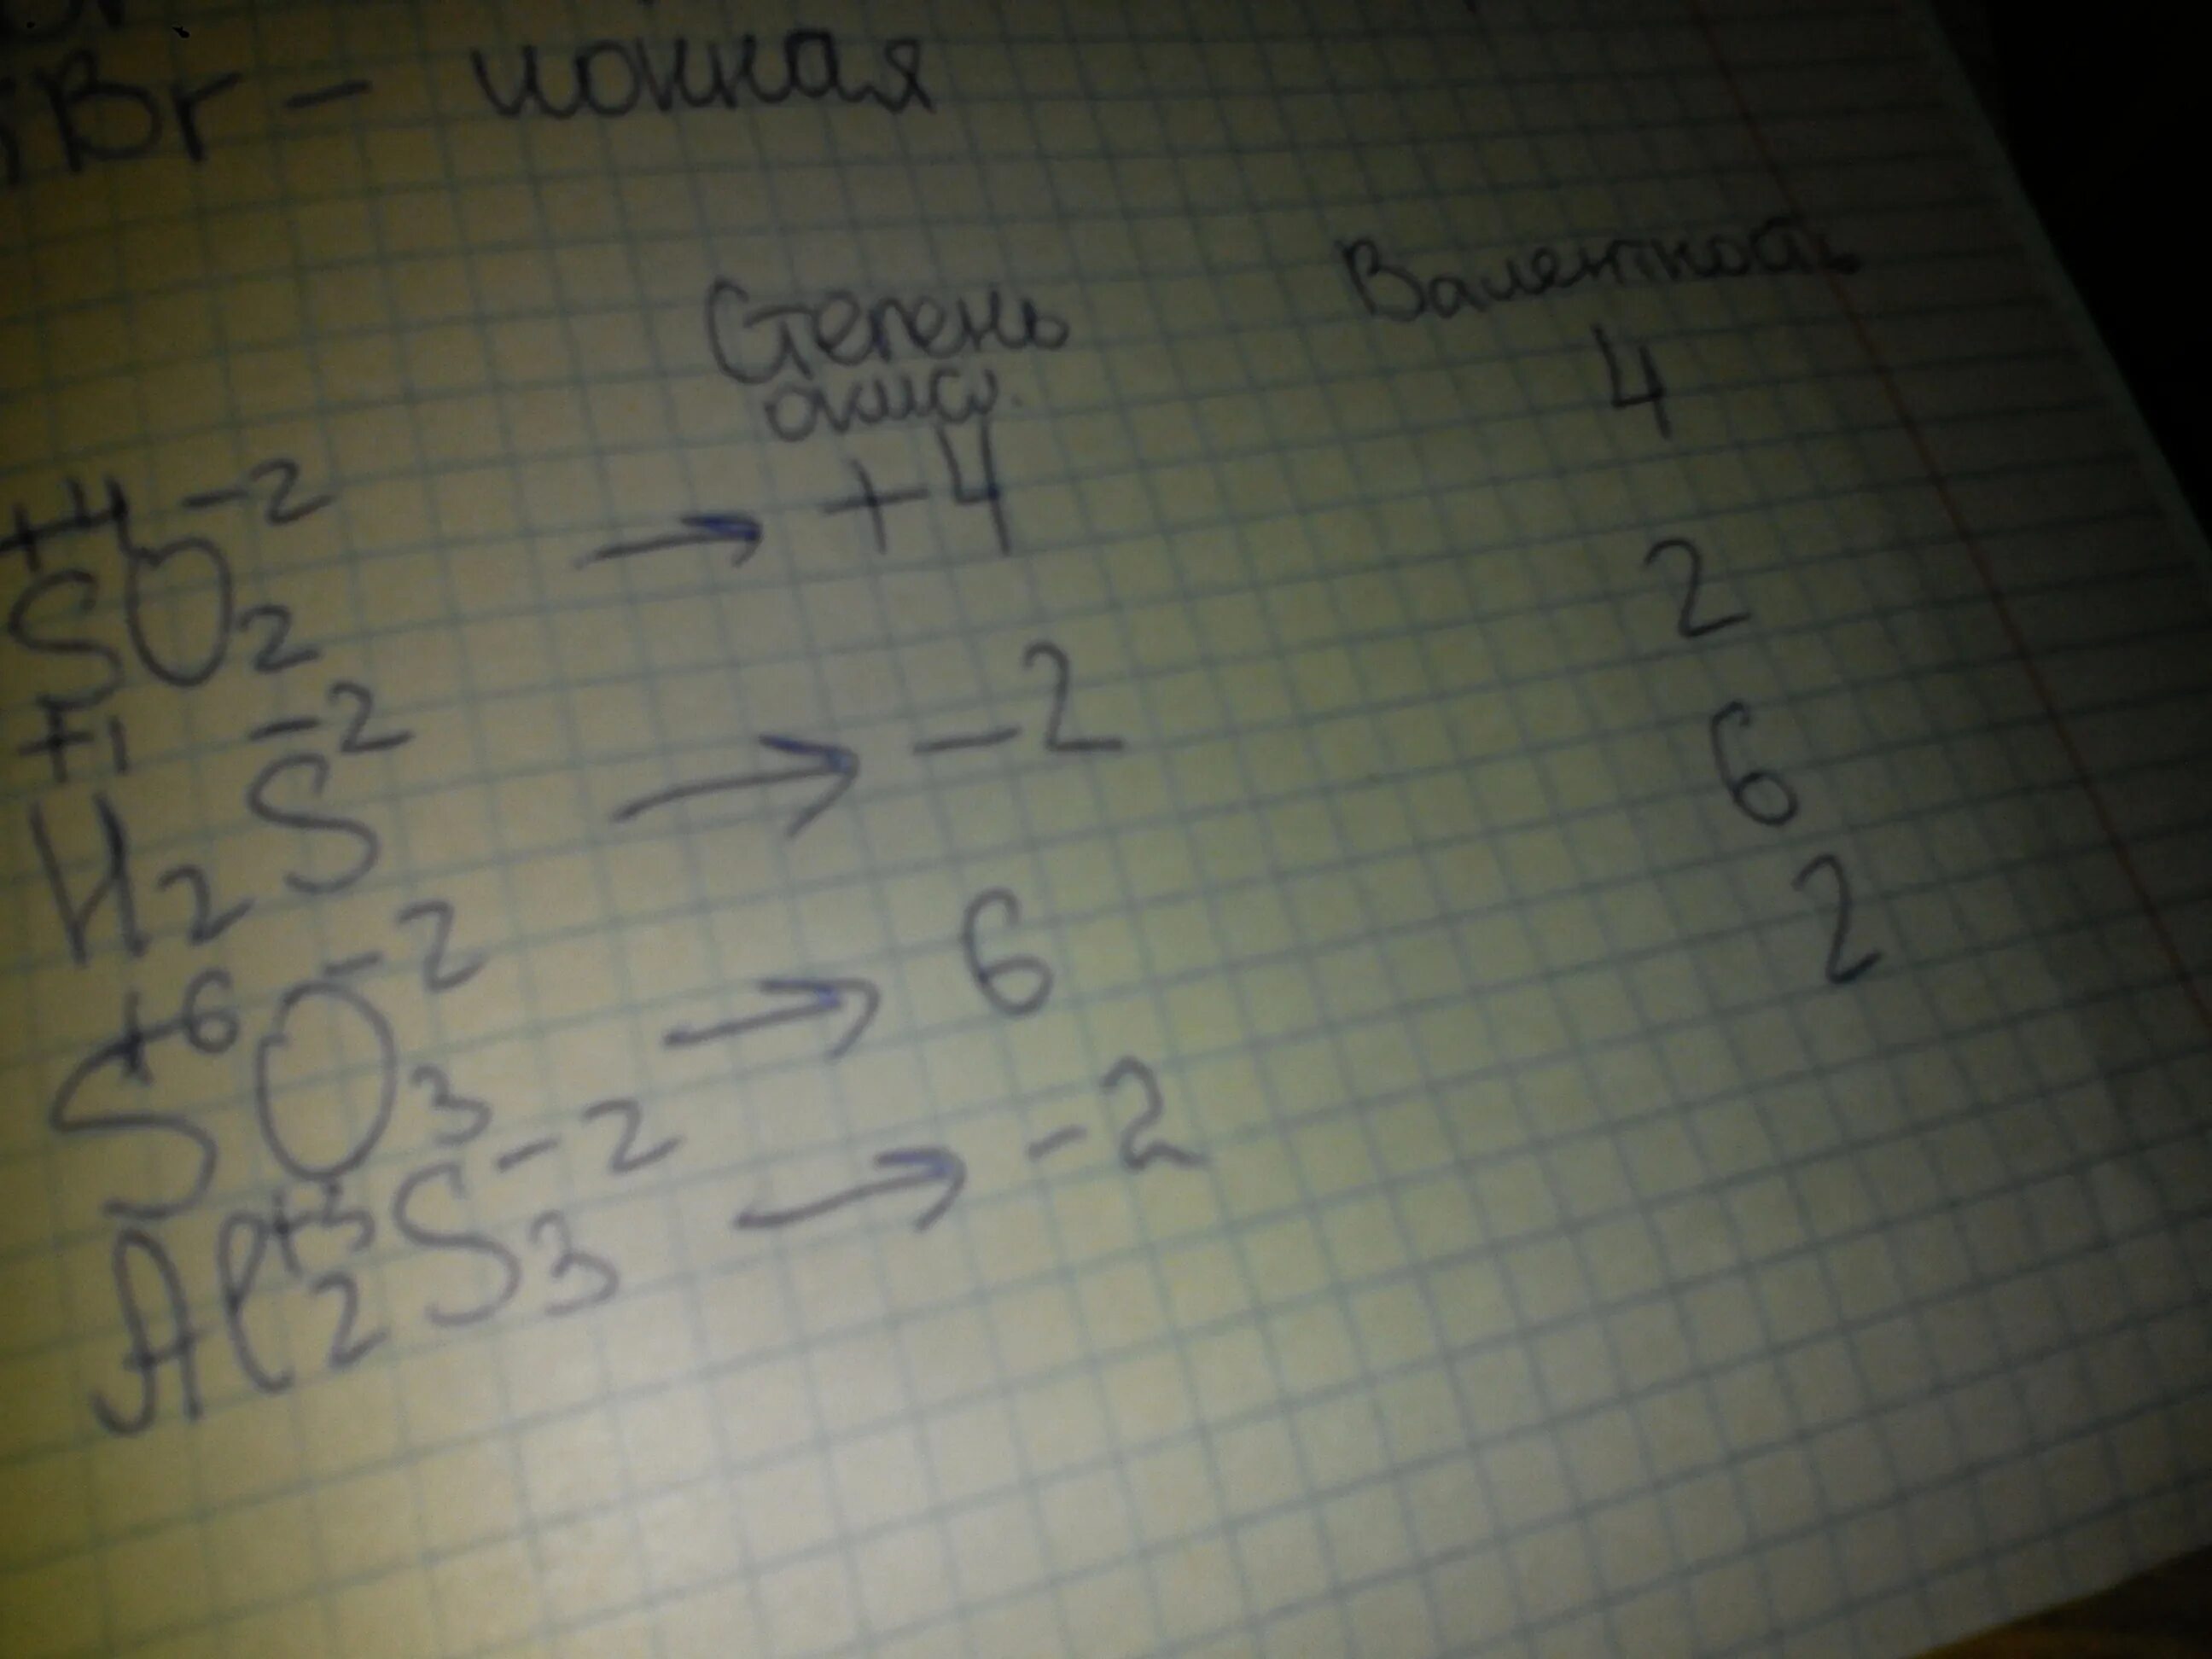 Br - ионная
Степень окис. Валентность
+4 -2
SO2 → +4 4
+1 -2
H2S → -2 2
+6 -2
SO3 → 6 6
+3 -2
Al2S3 → -2 2